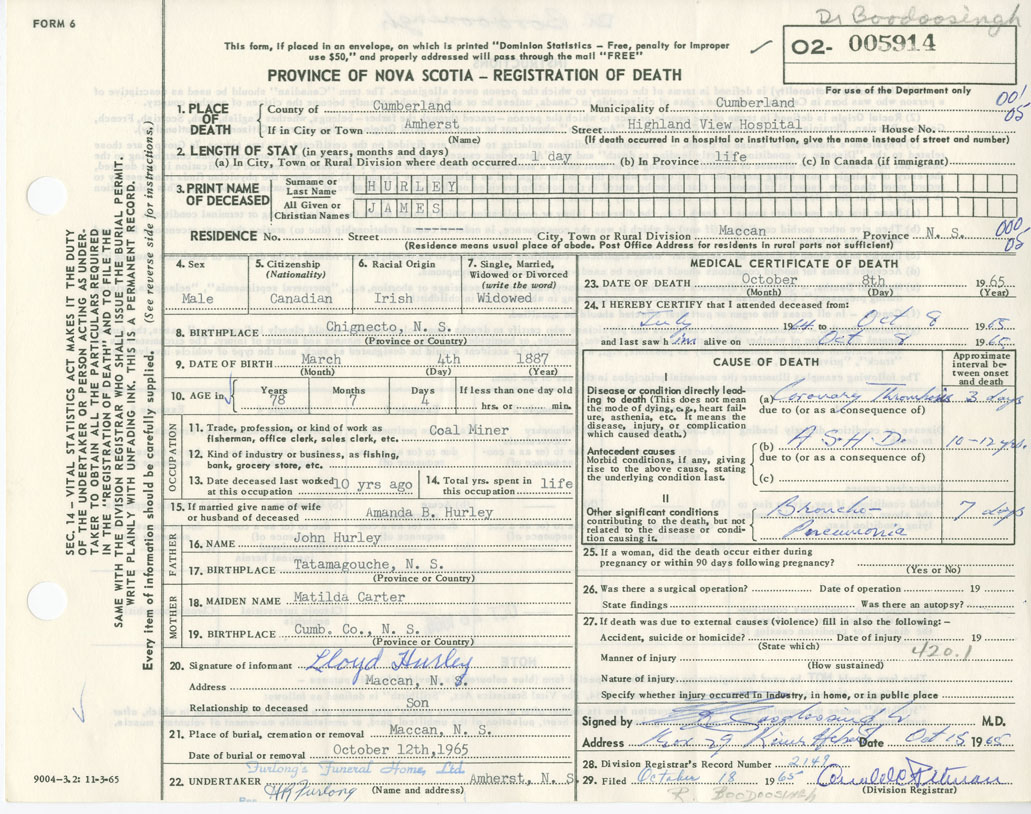 FORM 6
Dr Boodoosingh
This form, if placed in an envelope, on which is printed "Dominion Statistics – Free, penalty for improper
use $50," and properly addressed will pass through the mail "FREE"
O2- 005914
PROVINCE OF NOVA SCOTIA – REGISTRATION OF DEATH
For use of the Department only
001
05
1. PLACE OF DEATH
County of Cumberland Municipality of Cumberland
If in City or Town Amherst Street Highland View Hospital House No.
(Name) (If death occurred in a hospital or institution, give the name instead of street and number)
2. LENGTH OF STAY (in years, months and days)
(a) In City, Town or Rural Division where death occurred 1 day (b) In Province life (c) In Canada (if immigrant)
3. PRINT NAME OF DECEASED
Surname or Last Name HURLEY
All Given or Christian Names JAMES
RESIDENCE No. Street ------- City, Town or Rural Division Maccan Province N. S.
000
05
(Residence means usual place of abode. Post Office Address for residents in rural parts not sufficient)
4. Sex
Male
5. Citizenship
(Nationality)
Canadian
6. Racial Origin
Irish
7. Single, Married,
Widowed or Divorced
(write the word)
Widowed
8. BIRTHPLACE Chignecto, N. S.
(Province or Country)
9. DATE OF BIRTH March 4th 1887
(Month) (Day) (Year)
10. AGE in
Years Months Days If less than one day old
78 7 4 hrs. or min.
OCCUPATION
11. Trade, profession, or kind of work as
fisherman, office clerk, sales clerk, etc. Coal Miner
12. Kind of industry or business, as fishing,
bank, grocery store, etc.
13. Date deceased last worked
at this occupation 10 yrs ago
14. Total yrs. spent in
this occupation life
15. If married give name of wife
or husband of deceased Amanda B. Hurley
FATHER
16. NAME John Hurley
17. BIRTHPLACE Tatamagouche, N. S.
(Province or Country)
MOTHER
18. MAIDEN NAME Matilda Carter
19. BIRTHPLACE Cumb. Co., N. S.
(Province or Country)
20. Signature of informant Lloyd Hurley
Address Maccan, N. S.
Relationship to deceased Son
21. Place of burial, cremation or removal Maccan, N. S.
Date of burial or removal October 12th,1965
Furlong's Funeral Home, Ltd.
22. UNDERTAKER Amherst, N. S
HR Furlong (Name and address)
Per
MEDICAL CERTIFICATE OF DEATH
23. DATE OF DEATH October 8th 1965
(Month) (Day) (Year)
24. I HEREBY CERTIFY that I attended deceased from:
July 1964 to Oct 8 1965
and last saw him alive on Oct 8 1965
CAUSE OF DEATH
Approximate
interval be-
tween onset
and death
I
Disease or condition directly lead-
ing to death (This does not mean
the mode of dying, e.g., heart fail-
ure, asthenia, etc. It means the
disease, injury, or complication
which caused death.)
(a) Coronary Thrombosis 3 days
due to (or as a consequence of)
Antecedent causes
Morbid conditions, if any, giving
rise to the above cause, stating
the underlying condition last.
(b) A.S.H.D. 10-12 years.
due to (or as a consequence of)
(c)
II
Other significant conditions
contributing to the death, but not
related to the disease or condi-
tion causing it.
Broncho- 7 days
Pneumonia
25. If a woman, did the death occur either during
pregnancy or within 90 days following pregnancy?
(Yes or No)
26. Was there a surgical operation? Date of operation 19
State findings Was there an autopsy?
27. If death was due to external causes (violence) fill in also the following: –
Accident, suicide or homicide? Date of injury 19
(State which) 420.1
Manner of injury
(How sustained)
Nature of injury
Specify whether injury occurred in industry, in home, or in public place
Signed by M.D.
Address Box 29 Date Oct 15 1965
28. Division Registrar's Record Number 2149
29. Filed October 18 1965
(Division Registrar)
R. BOODOOSINGH
SEC. 14 – VITAL STATISTICS ACT MAKES IT THE DUTY
OF THE UNDERTAKER OR PERSON ACTING AS UNDER-
TAKER TO OBTAIN ALL THE PARTICULARS REQUIRED
IN THE "REGISTRATION OF DEATH" AND TO FILE THE
SAME WITH THE DIVISION REGISTRAR WHO SHALL ISSUE THE BURIAL PERMIT.
WRITE PLAINLY WITH UNFADING INK. THIS IS A PERMANENT RECORD.
Every item of information should be carefully supplied. (See reverse side for instructions.)
9004-3.2: 11-3-65